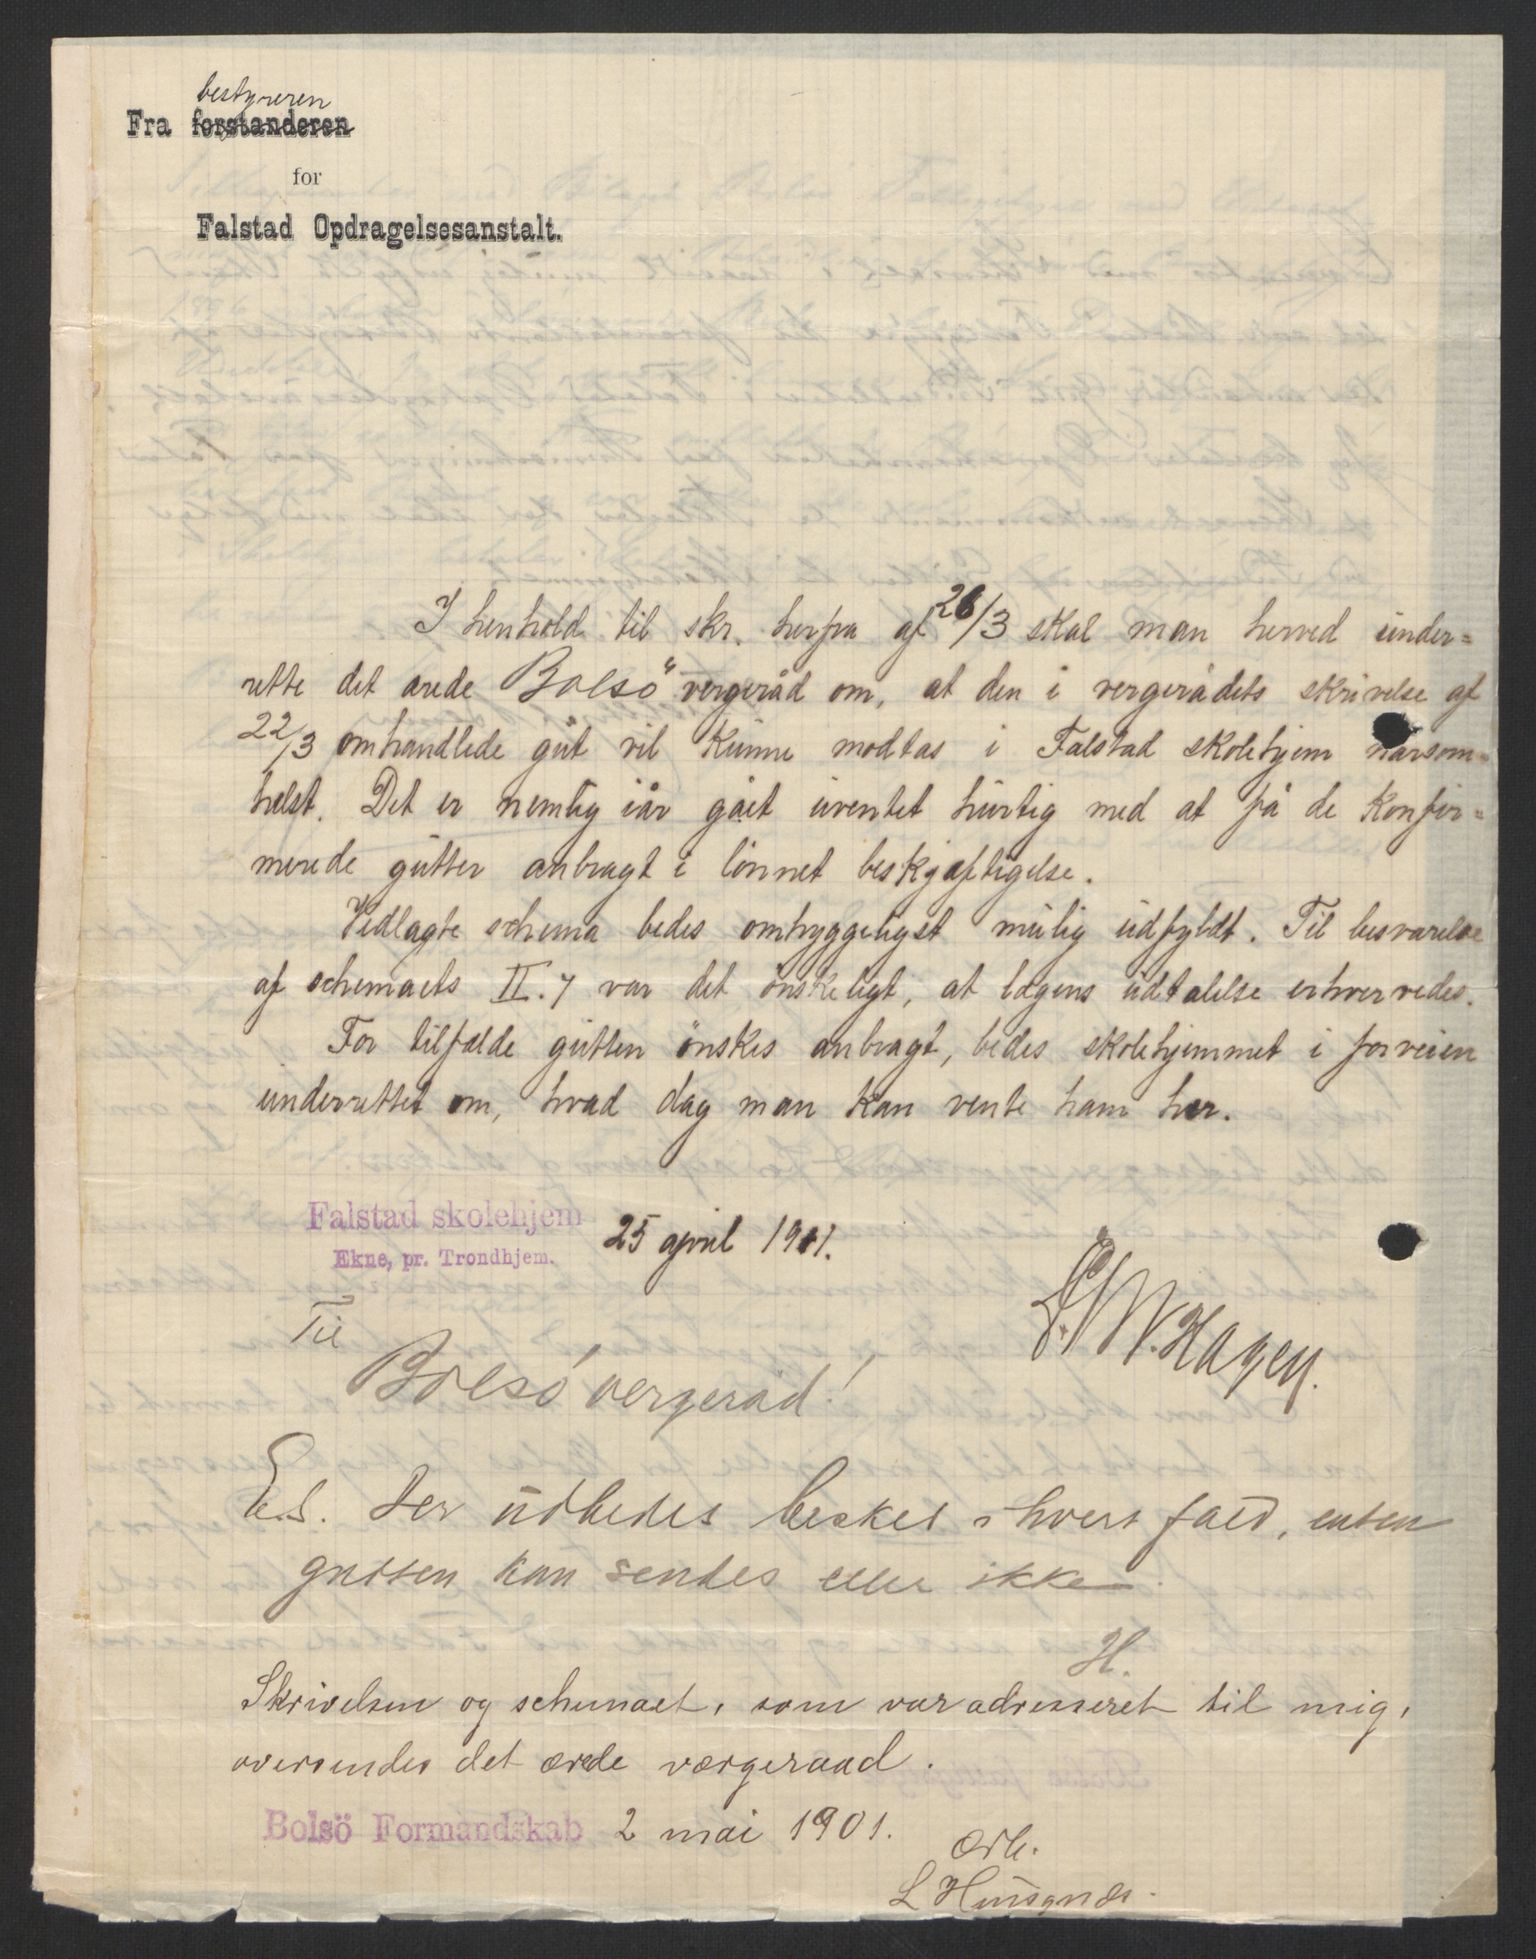 bestyreren
Fra forstanderen
for
Falstad Opdragelsesanstalt.
I henhold til skr. herfra af 26/3 skal man herved under=
rette det ærede Bolsö vergeråd om, at den i vergerådets skrivelse af
22/3 omhandlede gut vil kunne modtas i Falstad skolehjem nårsom=
helst. Det er nemlig iår gået uventet hurtig med at få de konfir=
merede gutter anbragt i lönnet beskjæftigelse.
Vedlagte schema bedes omhyggeligst mulig udfyldt. Til besvarelse
af schemaets II.7 var det önskeligt, at lægens udtalelse erhvervedes.
For tilfælde gutten önskes anbragt, bedes skolehjemmet i forveien
underrettet om, hvad dag man kan vente ham her.
Falstad skolehjem 25 april 1901.
Ekne, pr. Trondhjem.
W. Hagen.
Til
Bolsö vergeråd!
E.S. Der udbedes besked i hvert fald, enten
gutten kan sendes eller ikke.
H.
Skrivelsen og schemaet, som var adresseret til mig,
oversendes det ærede værgeraad.
Bolsö Formandskab 2 mai 1901.
Ærb.
L Husgnæs.